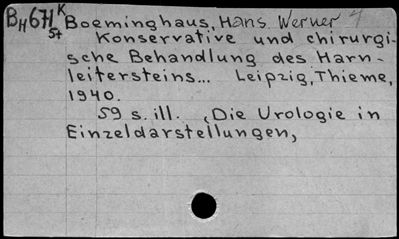 BH671 K Boeminghaus, Hans Werner 7
St Konservative und chirurgi-
sche Behandlung des Harn-
leitersteins... Leipzig, Thieme,
1940.
59 s. ill. (Die Urologie in
Einzeldarstellungen,